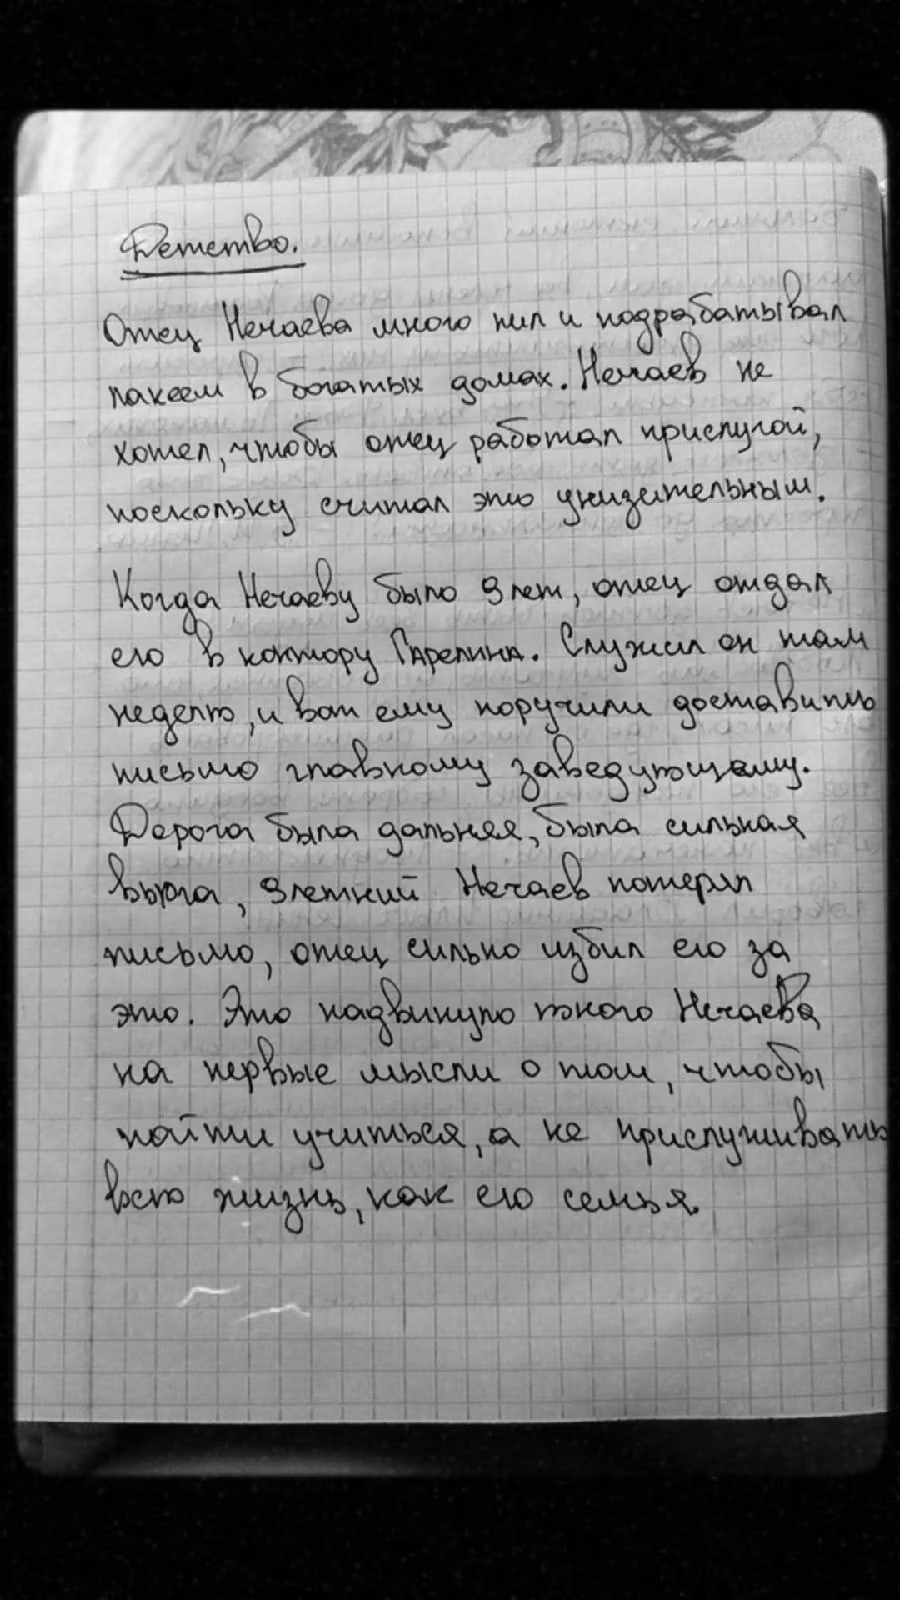 Детство.
Отец Нечаева много пил и подрабатывал
лакеем в богатых домах. Нечаев не
хотел, чтобы отец работал прислугой,
поскольку считал это унизительным.
Когда Нечаеву было 9 лет, отец отдал
его в контору Гарелина. Служил он там
неделю, и вот ему поручили доставить
письмо главному заведующему.
Дорога была дальняя, была сильная
вьюга, 9летний Нечаев потерял
письмо, отец сильно избил его за
это. Это надвинуло юного Нечаева
на первые мысли о том, чтобы
пойти учиться, а не прислуживать
всю жизнь, как его семья.